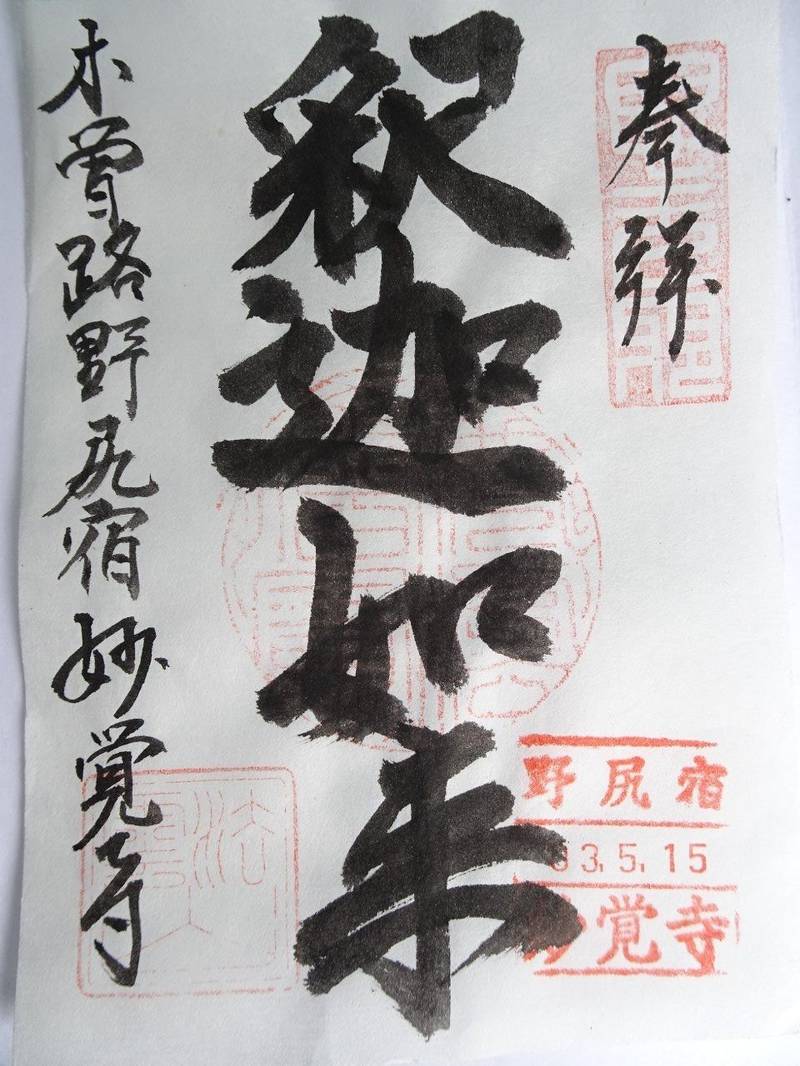 奉拝
釈迦如来
木曽路野尻宿妙覚寺
野尻宿
3.5.15
覚寺